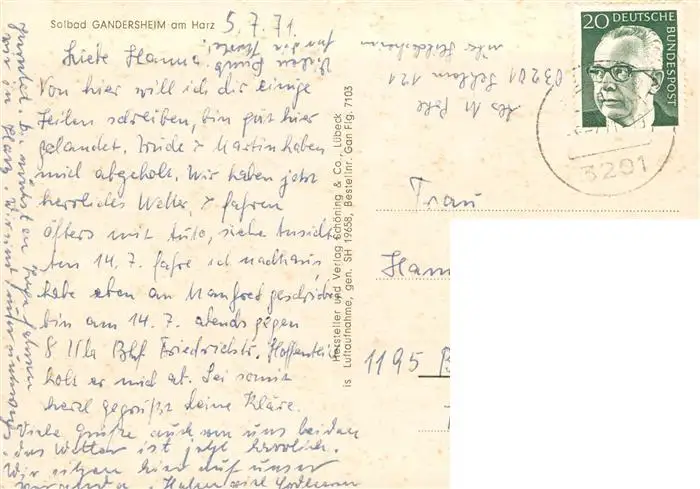 Solbad GANDERSHEIM am Harz
5.7.71.
Liebe Hanna!
Von hier will ich dir einige
Zeilen schreiben, bin gut hier
gelandet. Trude & Martin haben
mich abgeholt. Wir haben jetzt
herrliches Wetter, & fahren
öfters mit Auto, siehe Ansicht
Am 14.7. fahre ich nachhaus,
habe eben an Manfred geschrieben
bin am 14.7. abends gegen
8 Uhr Bhf Friedrichstr. Hoffentlich
holt er mich ab. Sei somit
herzl gegrüßt deine Kläre.
Viele Grüße auch von uns beiden
das Wetter ist jetzt herrlich.
Wir sitzen hier auf unser
Haben viel
Vielen Dank
für die Karte!
03201
121
über Hildesheim
Hersteller und Verlag Schöning & Co., Lübeck
is Luftaufnahme, gen. SH 19658, Bestellnr. Gan Fig. 7103
20 DEUTSCHE
BUNDESPOST
3201
Frau
Hann
1195 B